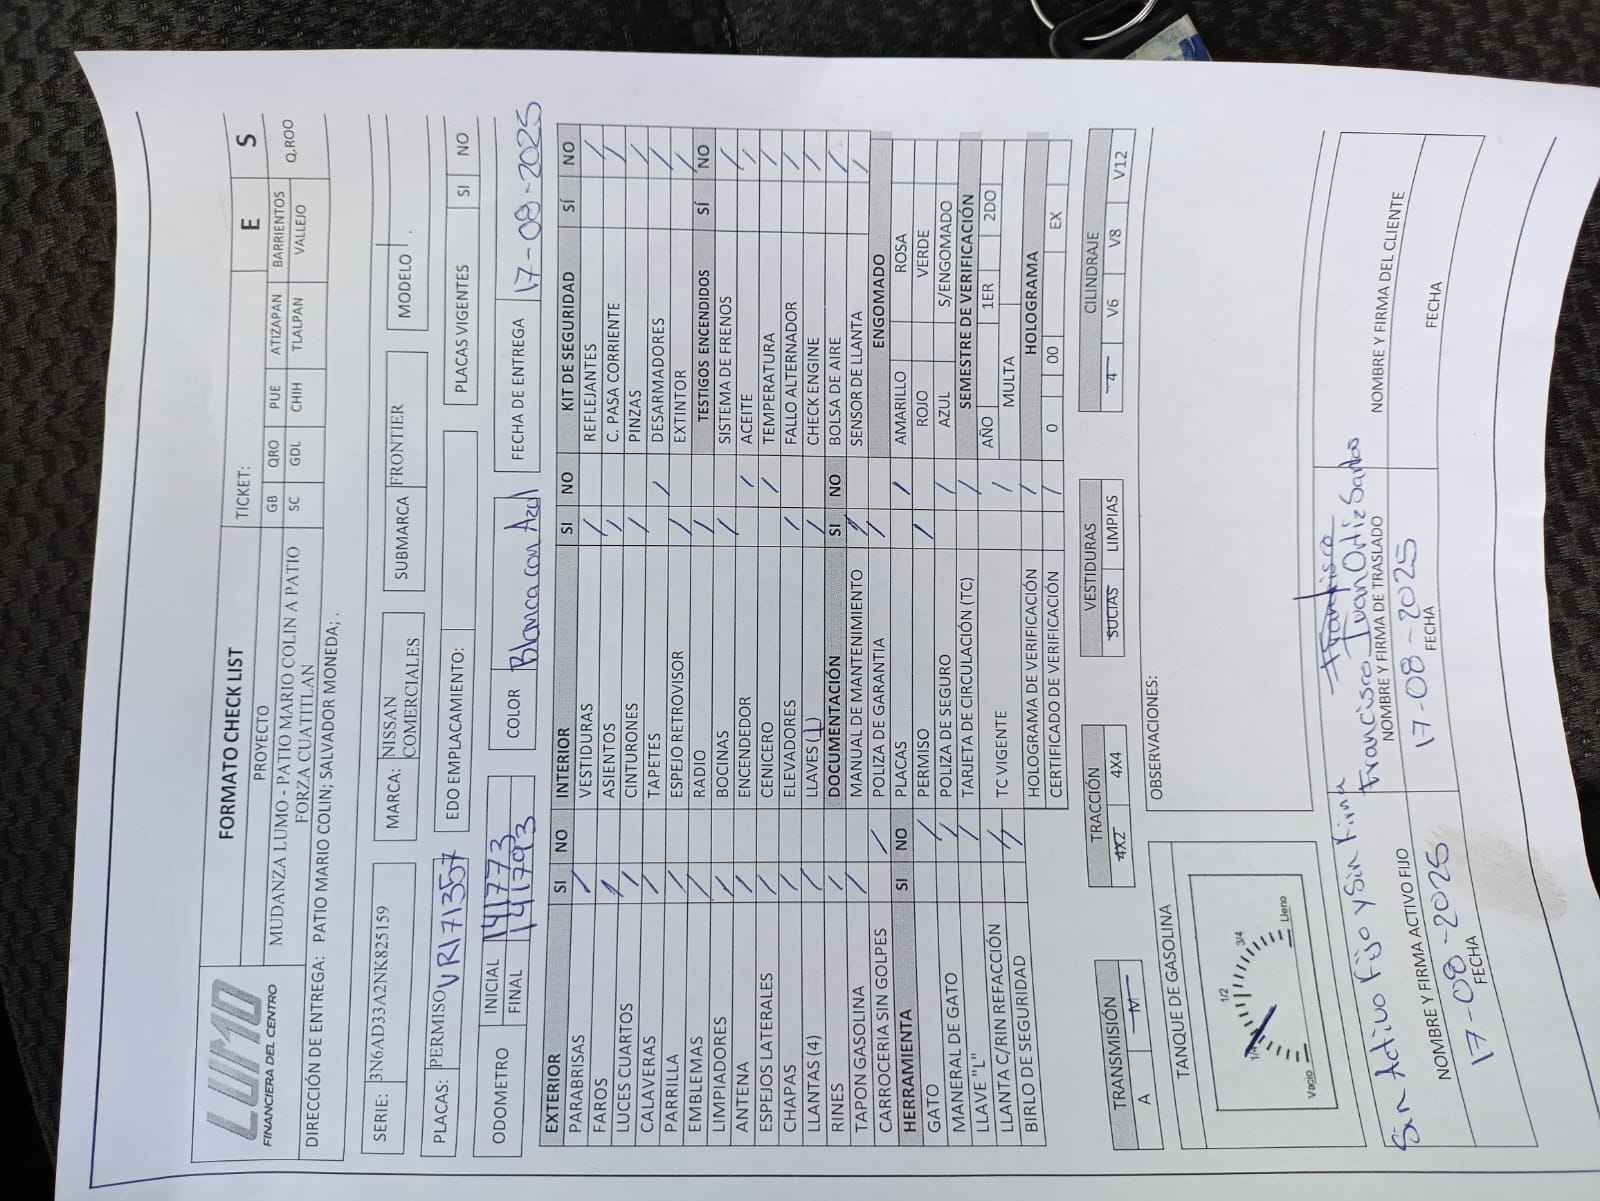 LUMO
FINANCIERA DEL CENTRO
FORMATO CHECK LIST
PROYECTO
TICKET: E S
MUDANZA LUMO - PATIO MARIO COLIN A PATIO FORZA CUATITLAN
GB QRO PUE ATIZAPAN BARRIENTOS Q.ROO
SC GDL CHIH TLALPAN VALLEJO
DIRECCIÓN DE ENTREGA: PATIO MARIO COLIN; SALVADOR MONEDA;.
SERIE: 3N6AD33A2NK825159 MARCA: NISSAN COMERCIALES SUBMARCA FRONTIER MODELO .
PLACAS: PERMISO VR171357 EDO EMPLACAMIENTO: PLACAS VIGENTES SI NO
ODOMETRO INICIAL 141773 COLOR Blanca con Azul FECHA DE ENTREGA 17-08-2025
FINAL 141793
EXTERIOR SI NO INTERIOR SI NO KIT DE SEGURIDAD SÍ NO
PARABRISAS / VESTIDURAS / REFLEJANTES /
FAROS / ASIENTOS / C. PASA CORRIENTE /
LUCES CUARTOS / CINTURONES / PINZAS /
CALAVERAS / TAPETES / DESARMADORES /
PARRILLA / ESPEJO RETROVISOR / EXTINTOR /
EMBLEMAS / RADIO / TESTIGOS ENCENDIDOS SÍ NO
LIMPIADORES / BOCINAS / SISTEMA DE FRENOS /
ANTENA / ENCENDEDOR / ACEITE /
ESPEJOS LATERALES / CENICERO / TEMPERATURA /
CHAPAS / ELEVADORES / FALLO ALTERNADOR /
LLANTAS (4) / LLAVES (1) / CHECK ENGINE /
RINES / DOCUMENTACIÓN SI NO BOLSA DE AIRE /
TAPON GASOLINA / MANUAL DE MANTENIMIENTO / SENSOR DE LLANTA /
CARROCERIA SIN GOLPES / POLIZA DE GARANTIA / ENGOMADO
HERRAMIENTA SI NO PLACAS / AMARILLO ROSA
GATO / PERMISO / ROJO VERDE
MANERAL DE GATO / POLIZA DE SEGURO / AZUL S/ENGOMADO
LLAVE "L" / TARJETA DE CIRCULACIÓN (TC) / SEMESTRE DE VERIFICACIÓN
LLANTA C/RIN REFACCIÓN / TC VIGENTE / AÑO 1ER 2DO
MULTA
BIRLO DE SEGURIDAD / HOLOGRAMA DE VERIFICACIÓN / HOLOGRAMA
CERTIFICADO DE VERIFICACIÓN / 0 00 EX
TRANSMISIÓN TRACCIÓN VESTIDURAS CILINDRAJE
A M 4X2 4X4 SUCIAS LIMPIAS 4 V6 V8 V12
TANQUE DE GASOLINA
Vacio 1/4 1/2 3/4 Lleno
OBSERVACIONES:
Sin Activo Fijo y Sin Firma
NOMBRE Y FIRMA ACTIVO FIJO
17-08-2025
FECHA
Francisco
Francisco Ivan Ortiz Santos
NOMBRE Y FIRMA DE TRASLADO
17-08-2025
FECHA
NOMBRE Y FIRMA DEL CLIENTE
FECHA